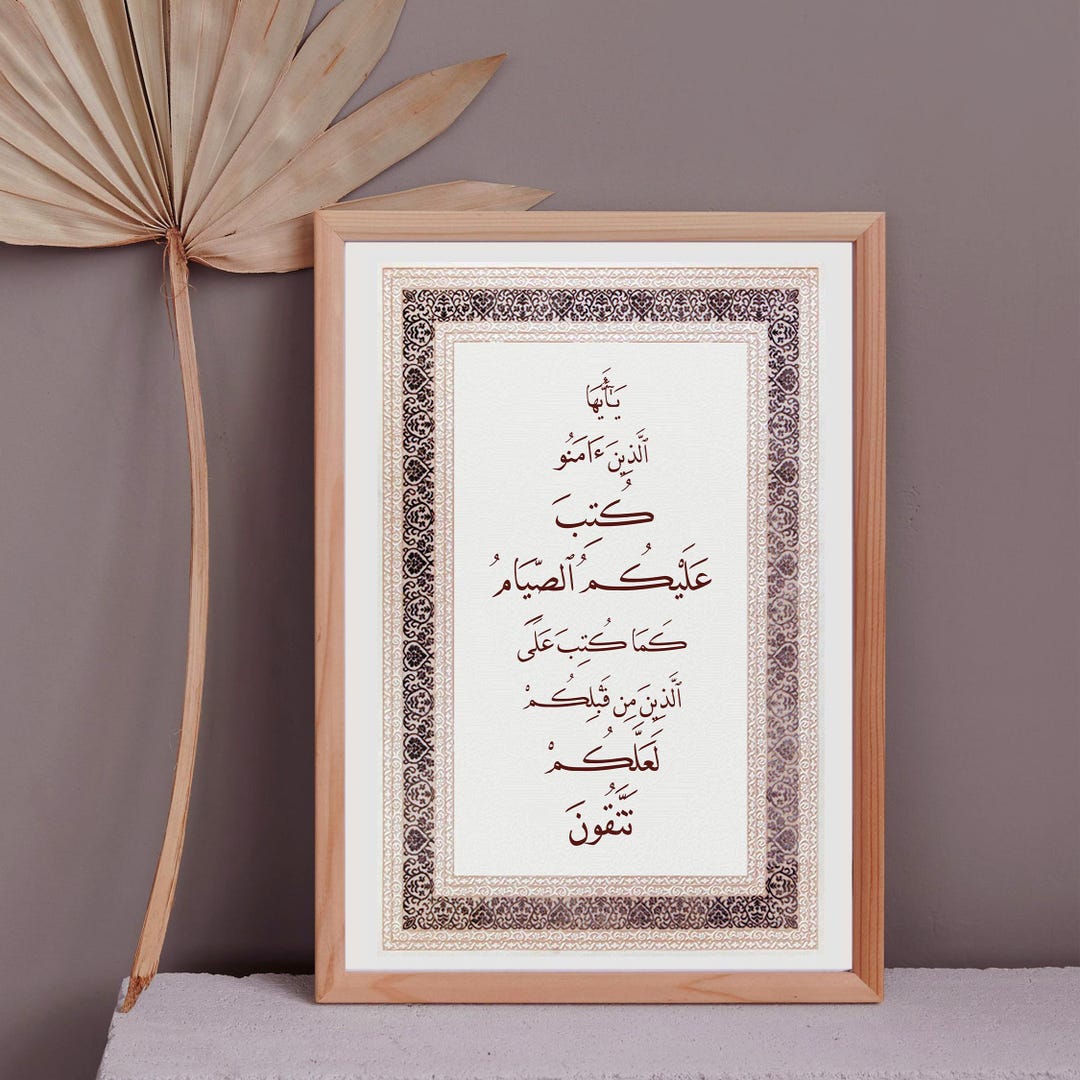 يَـٰٓأَيُّهَا
ٱلَّذِينَ ءَامَنُو
كُتِبَ
عَلَيْكُمُ ٱلصِّيَامُ
كَمَا كُتِبَ عَلَى
ٱلَّذِينَ مِن قَبْلِكُمْ
لَعَلَّكُمْ
تَتَّقُونَ